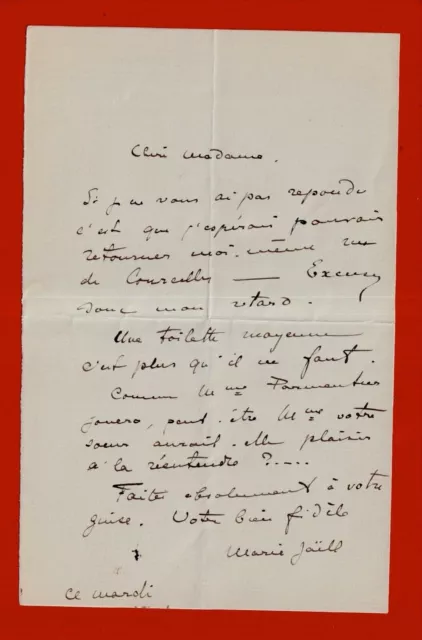 Chère Madame.
Si je ne vous ai pas répondu
c'est que j'espérais pouvoir
retourner moi-même rue
de Courcelles — Excusez
donc mon retard.
Une toilette moyenne
c'est plus qu'il ne faut.
Comme Mme Parmentier
jouera, peut-être Mme votre
soeur aurait-elle plaisir
à la réentendre ?....
Faites absolument à votre
guise. Votre bien fidèle
Marie Jaëll
ce mardi